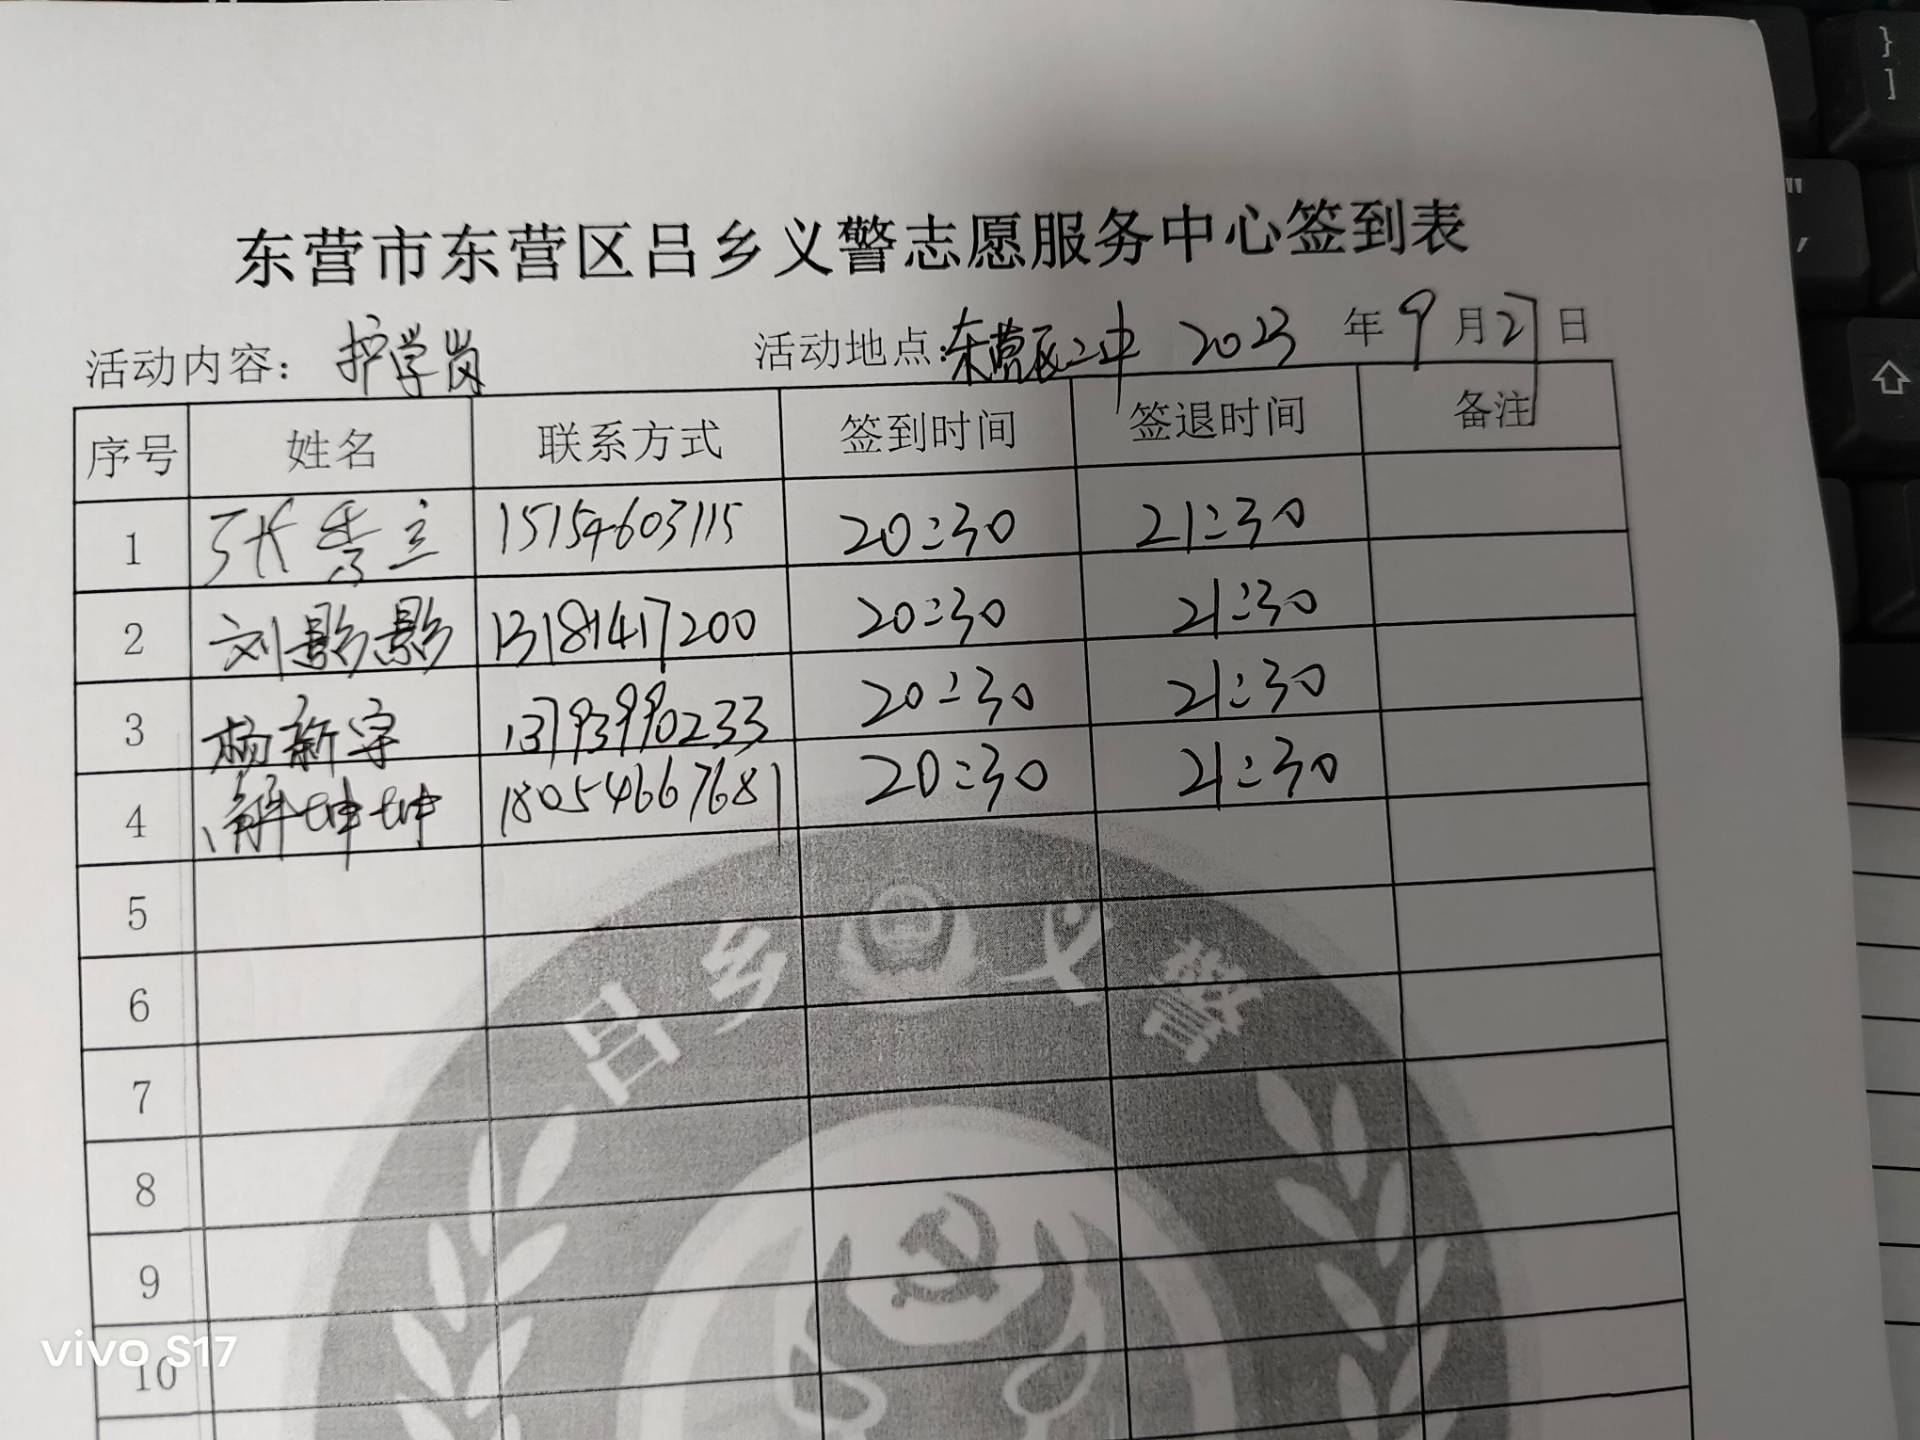 东营市东营区吕乡义警志愿服务中心签到表
活动内容： 护学岗 活动地点: 东营区二中 2023 年 9 月 21 日
序号 姓名 联系方式 签到时间 签退时间 备注
1 张秀立 15154603115 20:30 21:30
2 刘影影 13181417200 20:30 21:30
3 杨新宇 13793990233 20:30 21:30
4 解坤坤 18054667681 20:30 21:30
5
6
7
8
9
10
吕乡义警
vivo S17
}
]
"
,